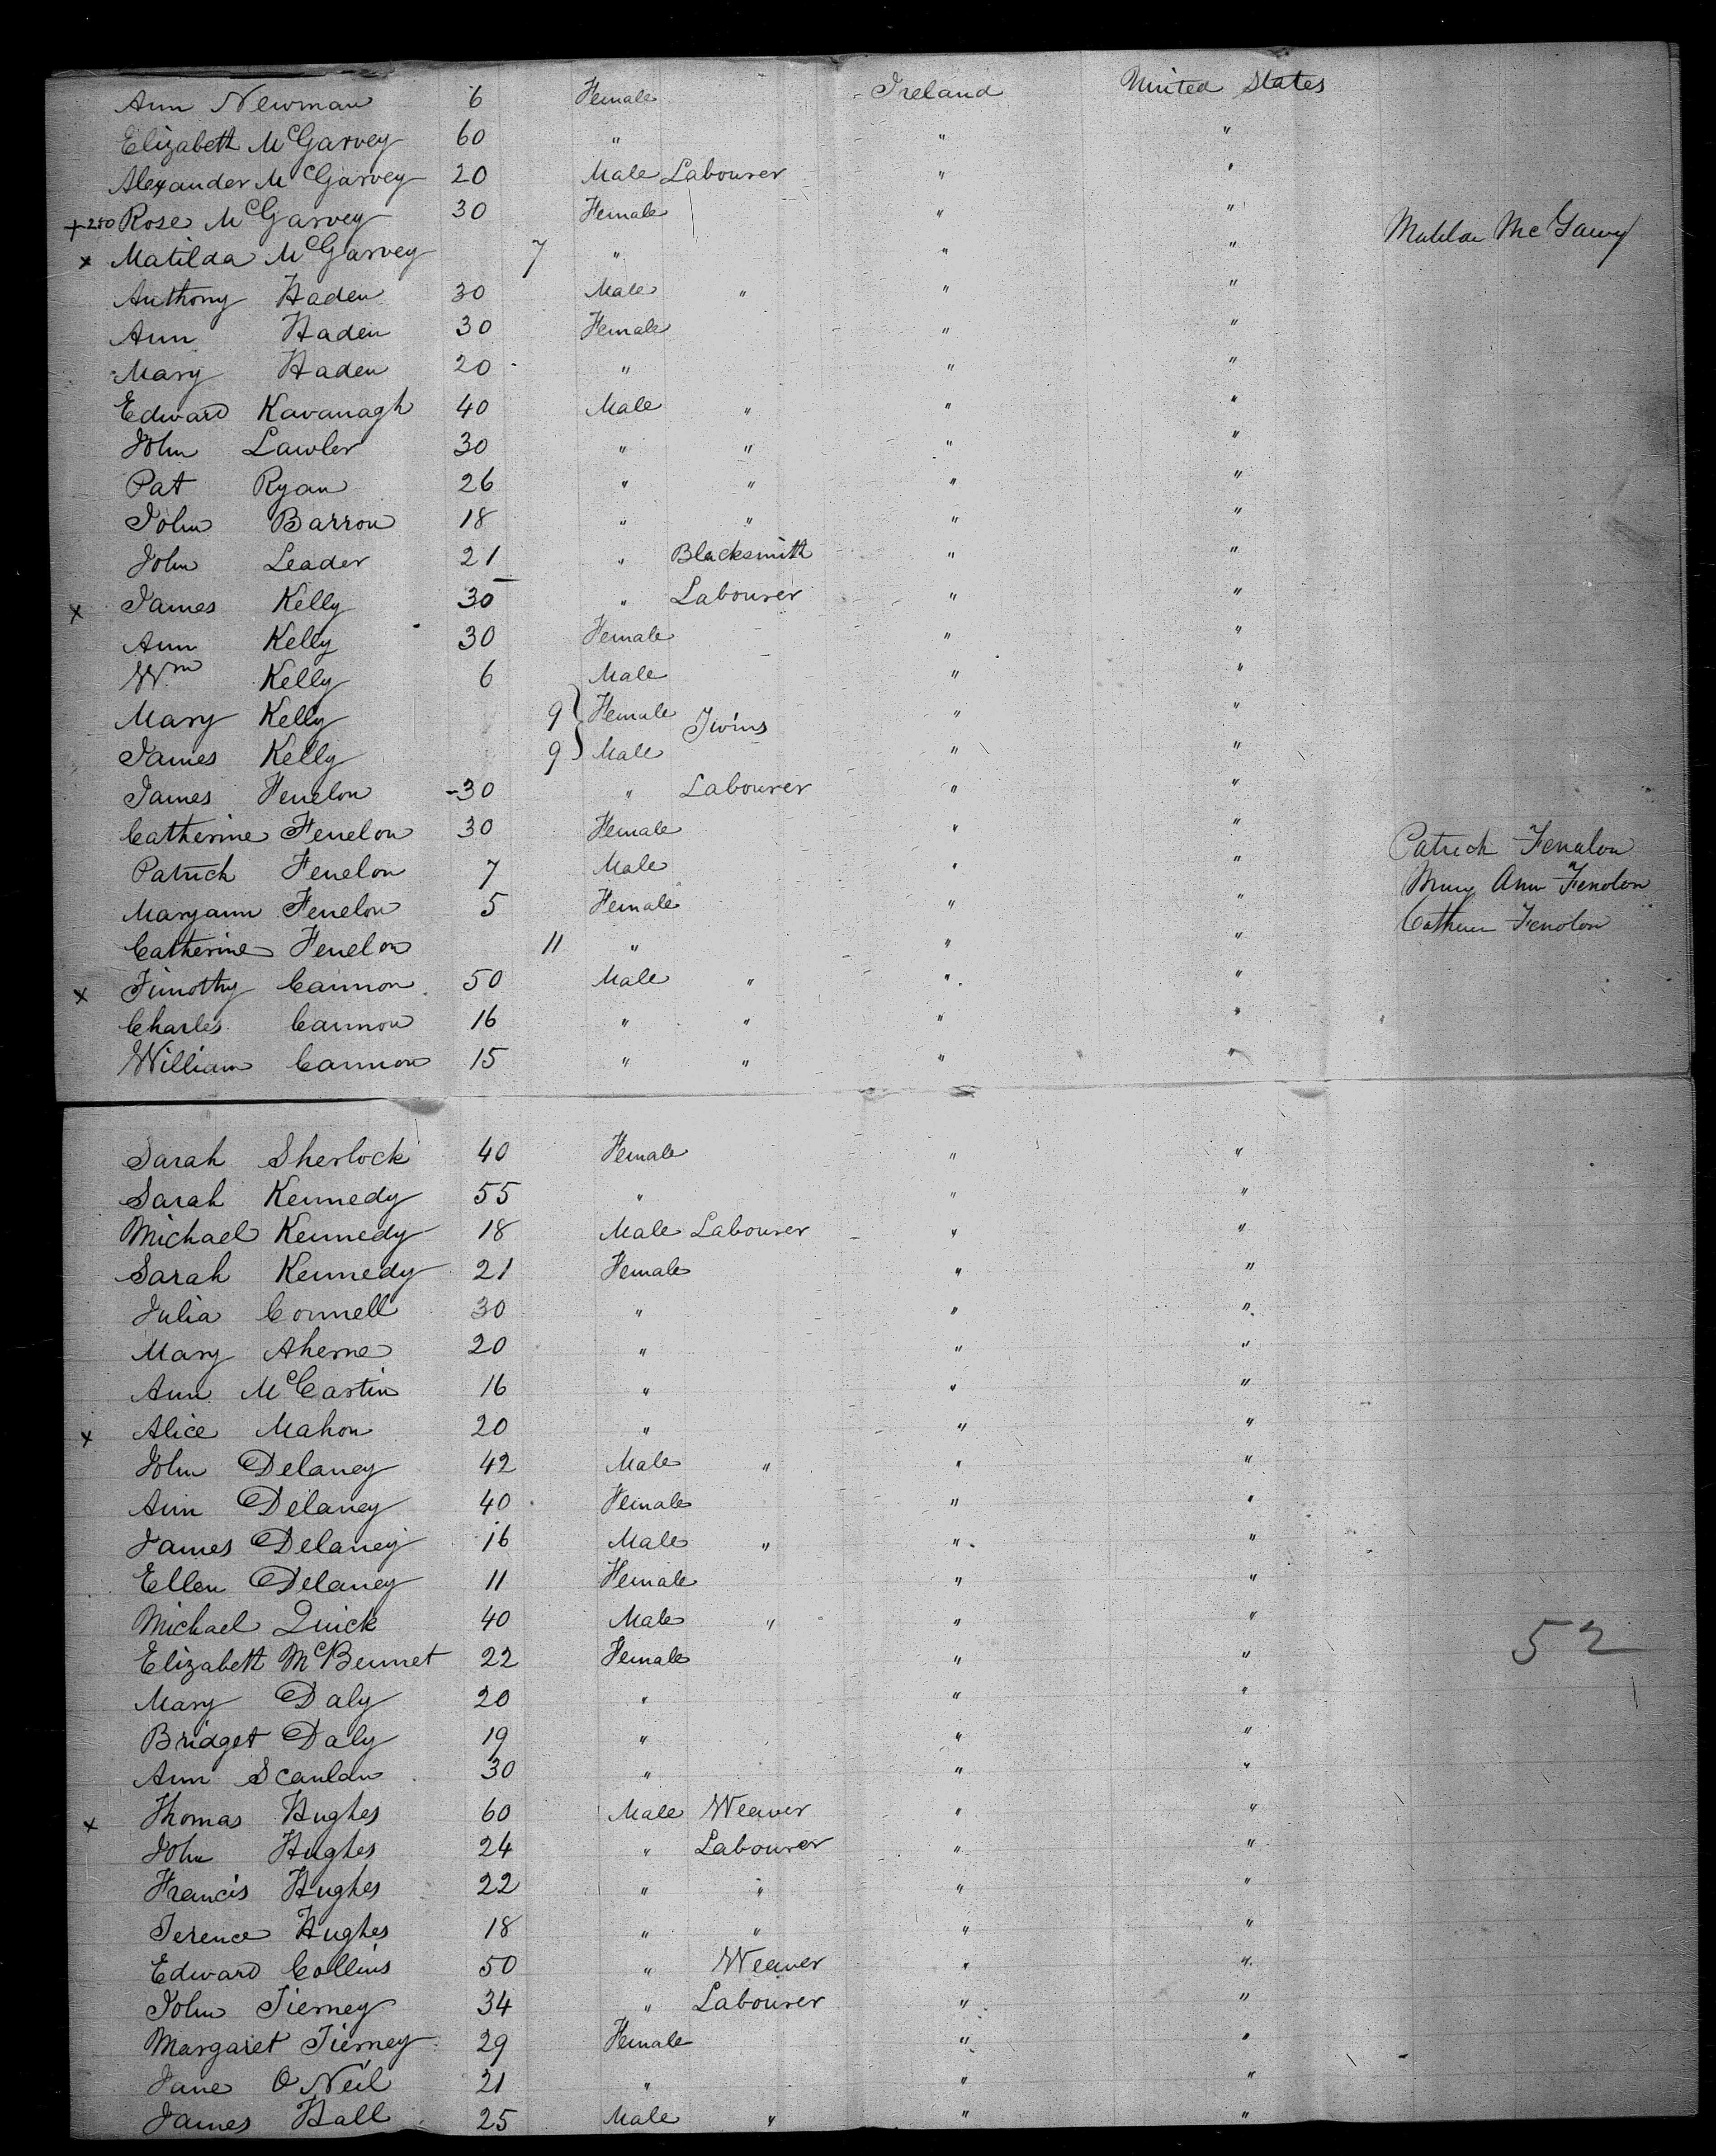 Ann Newman 6 Female Ireland United States
Elizabeth McGarvey 60 " " "
Alexander McGarvey 20 Male Labourer " "
+ 250 Rose McGarvey 30 Female " "
x Matilda McGarvey 7 " " " Matilda McGarvey
Anthony Haden 30 Male " " "
Ann Haden 30 Female " "
Mary Haden 20 " " "
Edward Kavanagh 40 Male " " "
John Lawler 30 " " " "
Pat Ryan 26 " " " "
John Barron 18 " " " "
John Leader 21 " Blacksmith " "
x James Kelly 30 " Labourer " "
Ann Kelly 30 Female " "
Wm Kelly 6 Male " "
Mary Kelly 9 } Female Twins " "
James Kelly 9 } Male " "
James Fenelon 30 " Labourer " "
Catherine Fenelon 30 Female " "
Patrick Fenelon 7 Male " " Patrick Fenalon
Maryann Fenelon 5 Female " " Mary Ann Fenolon
Catherine Fenelon 11 " " " Fenolon
x Timothy Cannon 50 Male " " "
Charles Cannon 16 " " " "
William Cannon 15 " " " "
Sarah Sherlock 40 Female " "
Sarah Kennedy 55 " " "
Michael Kennedy 18 Male Labourer " "
Sarah Kennedy 21 Female " "
Julia Connell 30 " " "
Mary Aherne 20 " " "
Ann McCartin 16 " " "
x Alice Mahon 20 " " "
John Delaney 42 Male " " "
Ann Delaney 40 Female " "
James Delaney 16 Male " " "
Ellen Delaney 11 Female " "
Michael Quick 40 Male " " "
Elizabeth McBennet 22 Female " " 52
Mary Daly 20 " " "
Bridget Daly 19 " " "
Ann Scanlan 30 " " "
x Thomas Hughes 60 Male Weaver " "
John Hughes 24 " Labourer " "
Francis Hughes 22 " " " "
Terence Hughes 18 " " " "
Edward Collins 50 " Weaver " "
John Tierney 34 " Labourer " "
Margaret Tierney 29 Female " "
Jane O Neil 21 " " "
James Hall 25 Male " " "